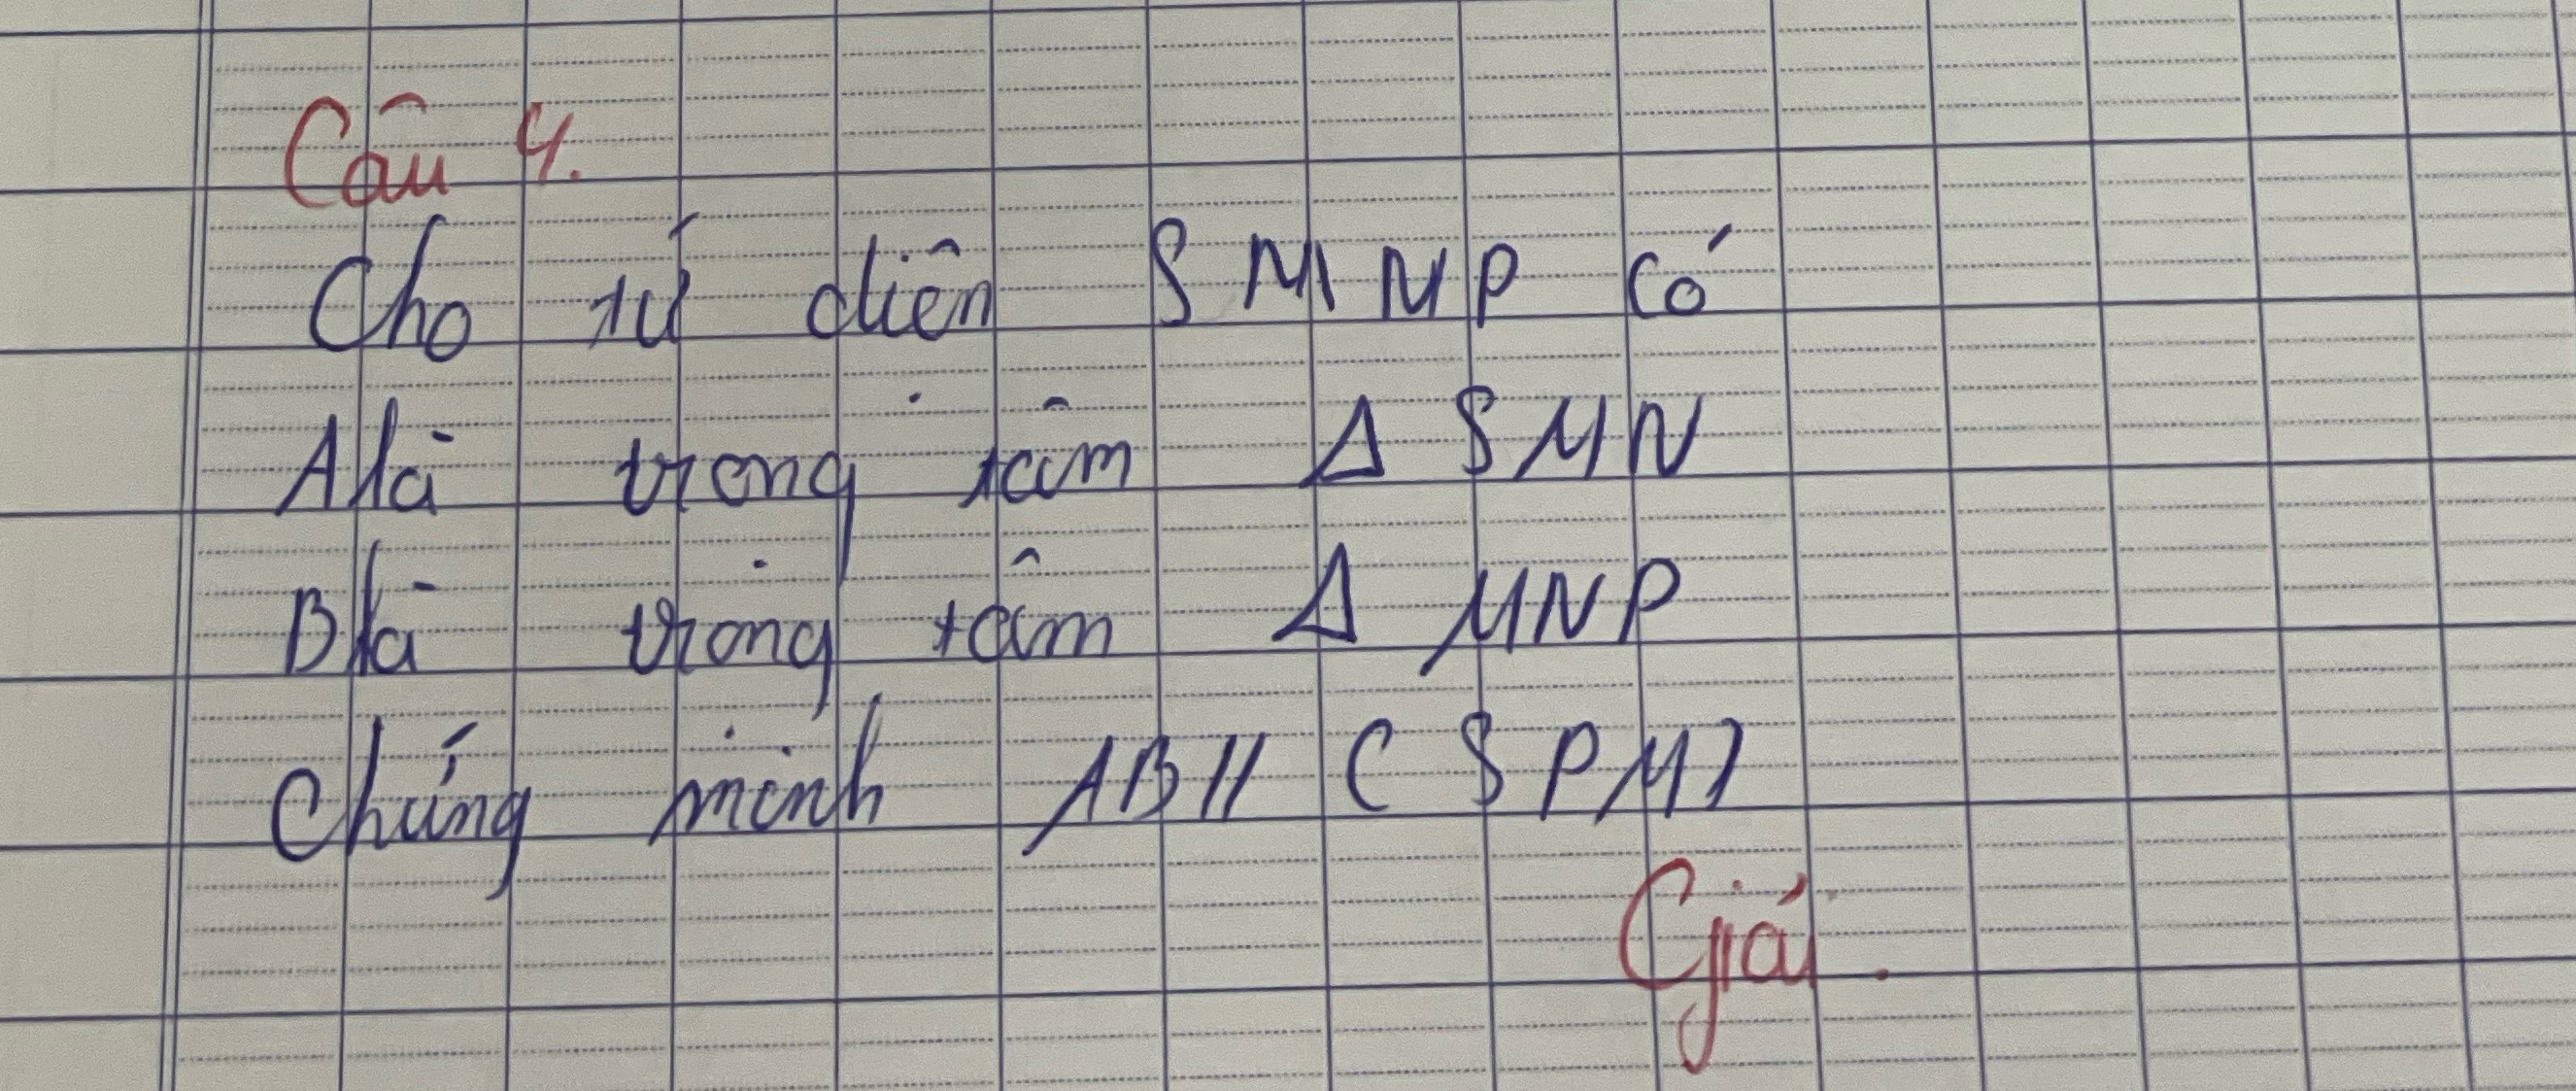 Câu 4.
Cho tứ diên SMNP có
A là trọng tâm Δ SMN
B là trọng tâm Δ MNP
Chứng minh AB // (SPM)
Giải.